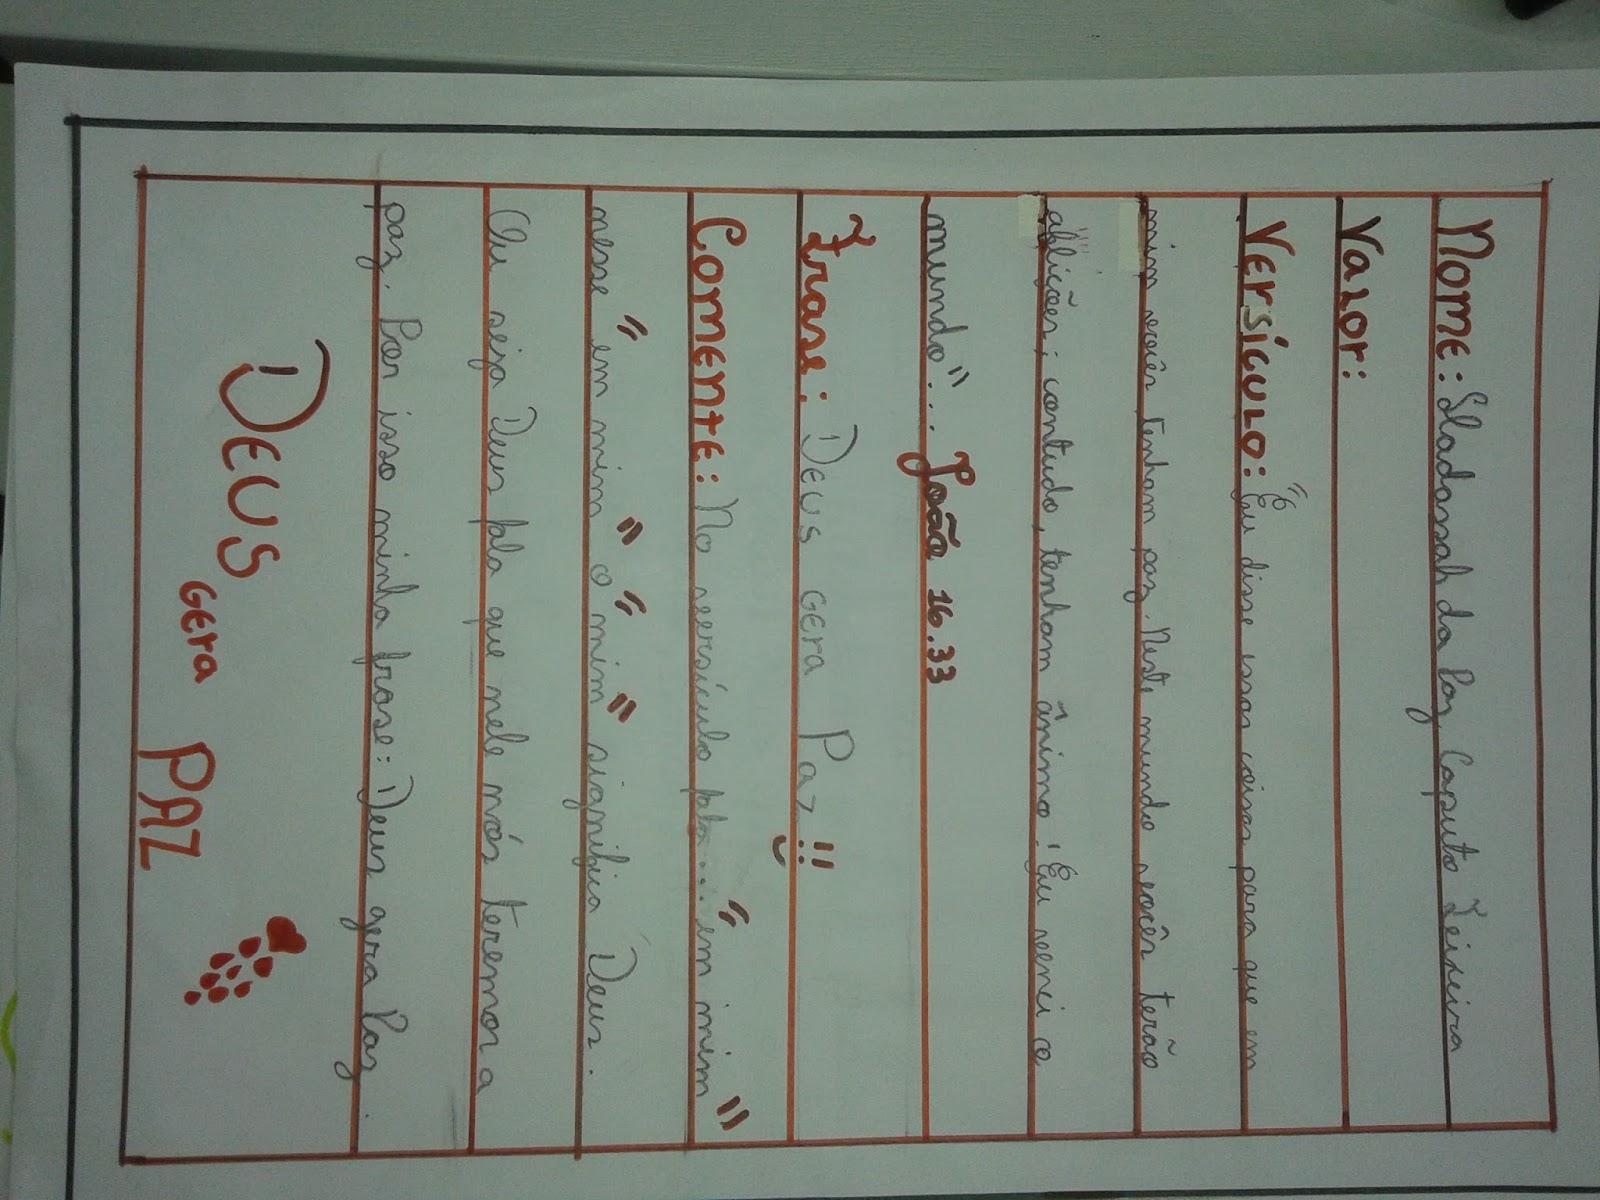 Nome: Hadassah da Paz Caputo Teixeira
Valor:
Versículo: "Eu disse essas coisas para que em
mim vocês tenham paz. Neste mundo vocês terão
aflições; contudo, tenham ânimo! Eu venci o
mundo"... João 16.33
Frase: Deus gera Paz!!
Comente: No versículo fala... "em mim"
nesse "em mim" o "mim" significa Deus.
Ou seja Deus fala que nele nós teremos a
paz. Por isso minha frase: Deus gera Paz.
DEUS
GERA
PAZ